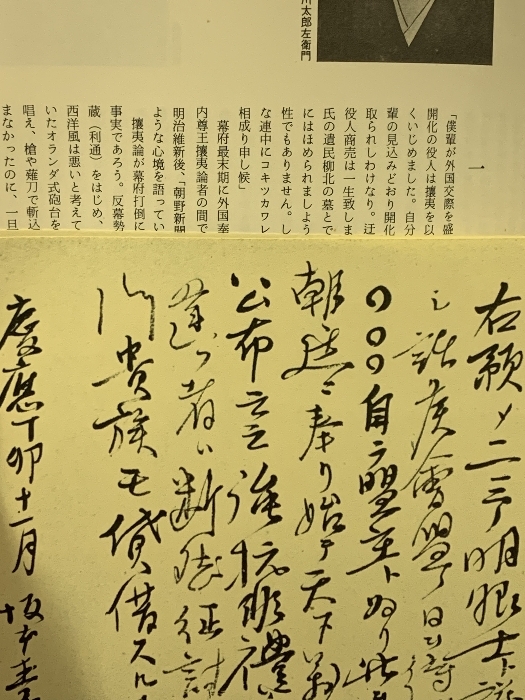 川太郎左衛門
一
「僕輩が外国交際を盛
開化の役人は攘夷を以
くいじめました。自分
輩の見込みどおり開化
取られしわけなり。迂
役人商売は一生致しま
氏の遺民柳北の墓とで
にはほめられましよう
性でもありません。し
な連中にコキツカワレ
相成り申し候」
幕府最末期に外国奉
内尊王攘夷論者の間で
明治維新後、「朝野新聞
ような心境を語ってい
攘夷論が幕府打倒に
事実であろう。反幕勢
蔵（利通）をはじめ、
西洋風は悪いと考えて
いたオランダ式砲台を
唱え、槍や薙刀で斬込
まなかったのに、一旦
右預メ二三ノ明眼士ト議
シ諸侯會盟ノ日ヲ待
〇〇〇自ラ盟主ト為リ此
朝廷ニ奉リ始テ天下萬
公布云云強抗非禮
違フ者ハ断然征討
門貴族モ貸借スル
慶應丁卯十一月 坂本直